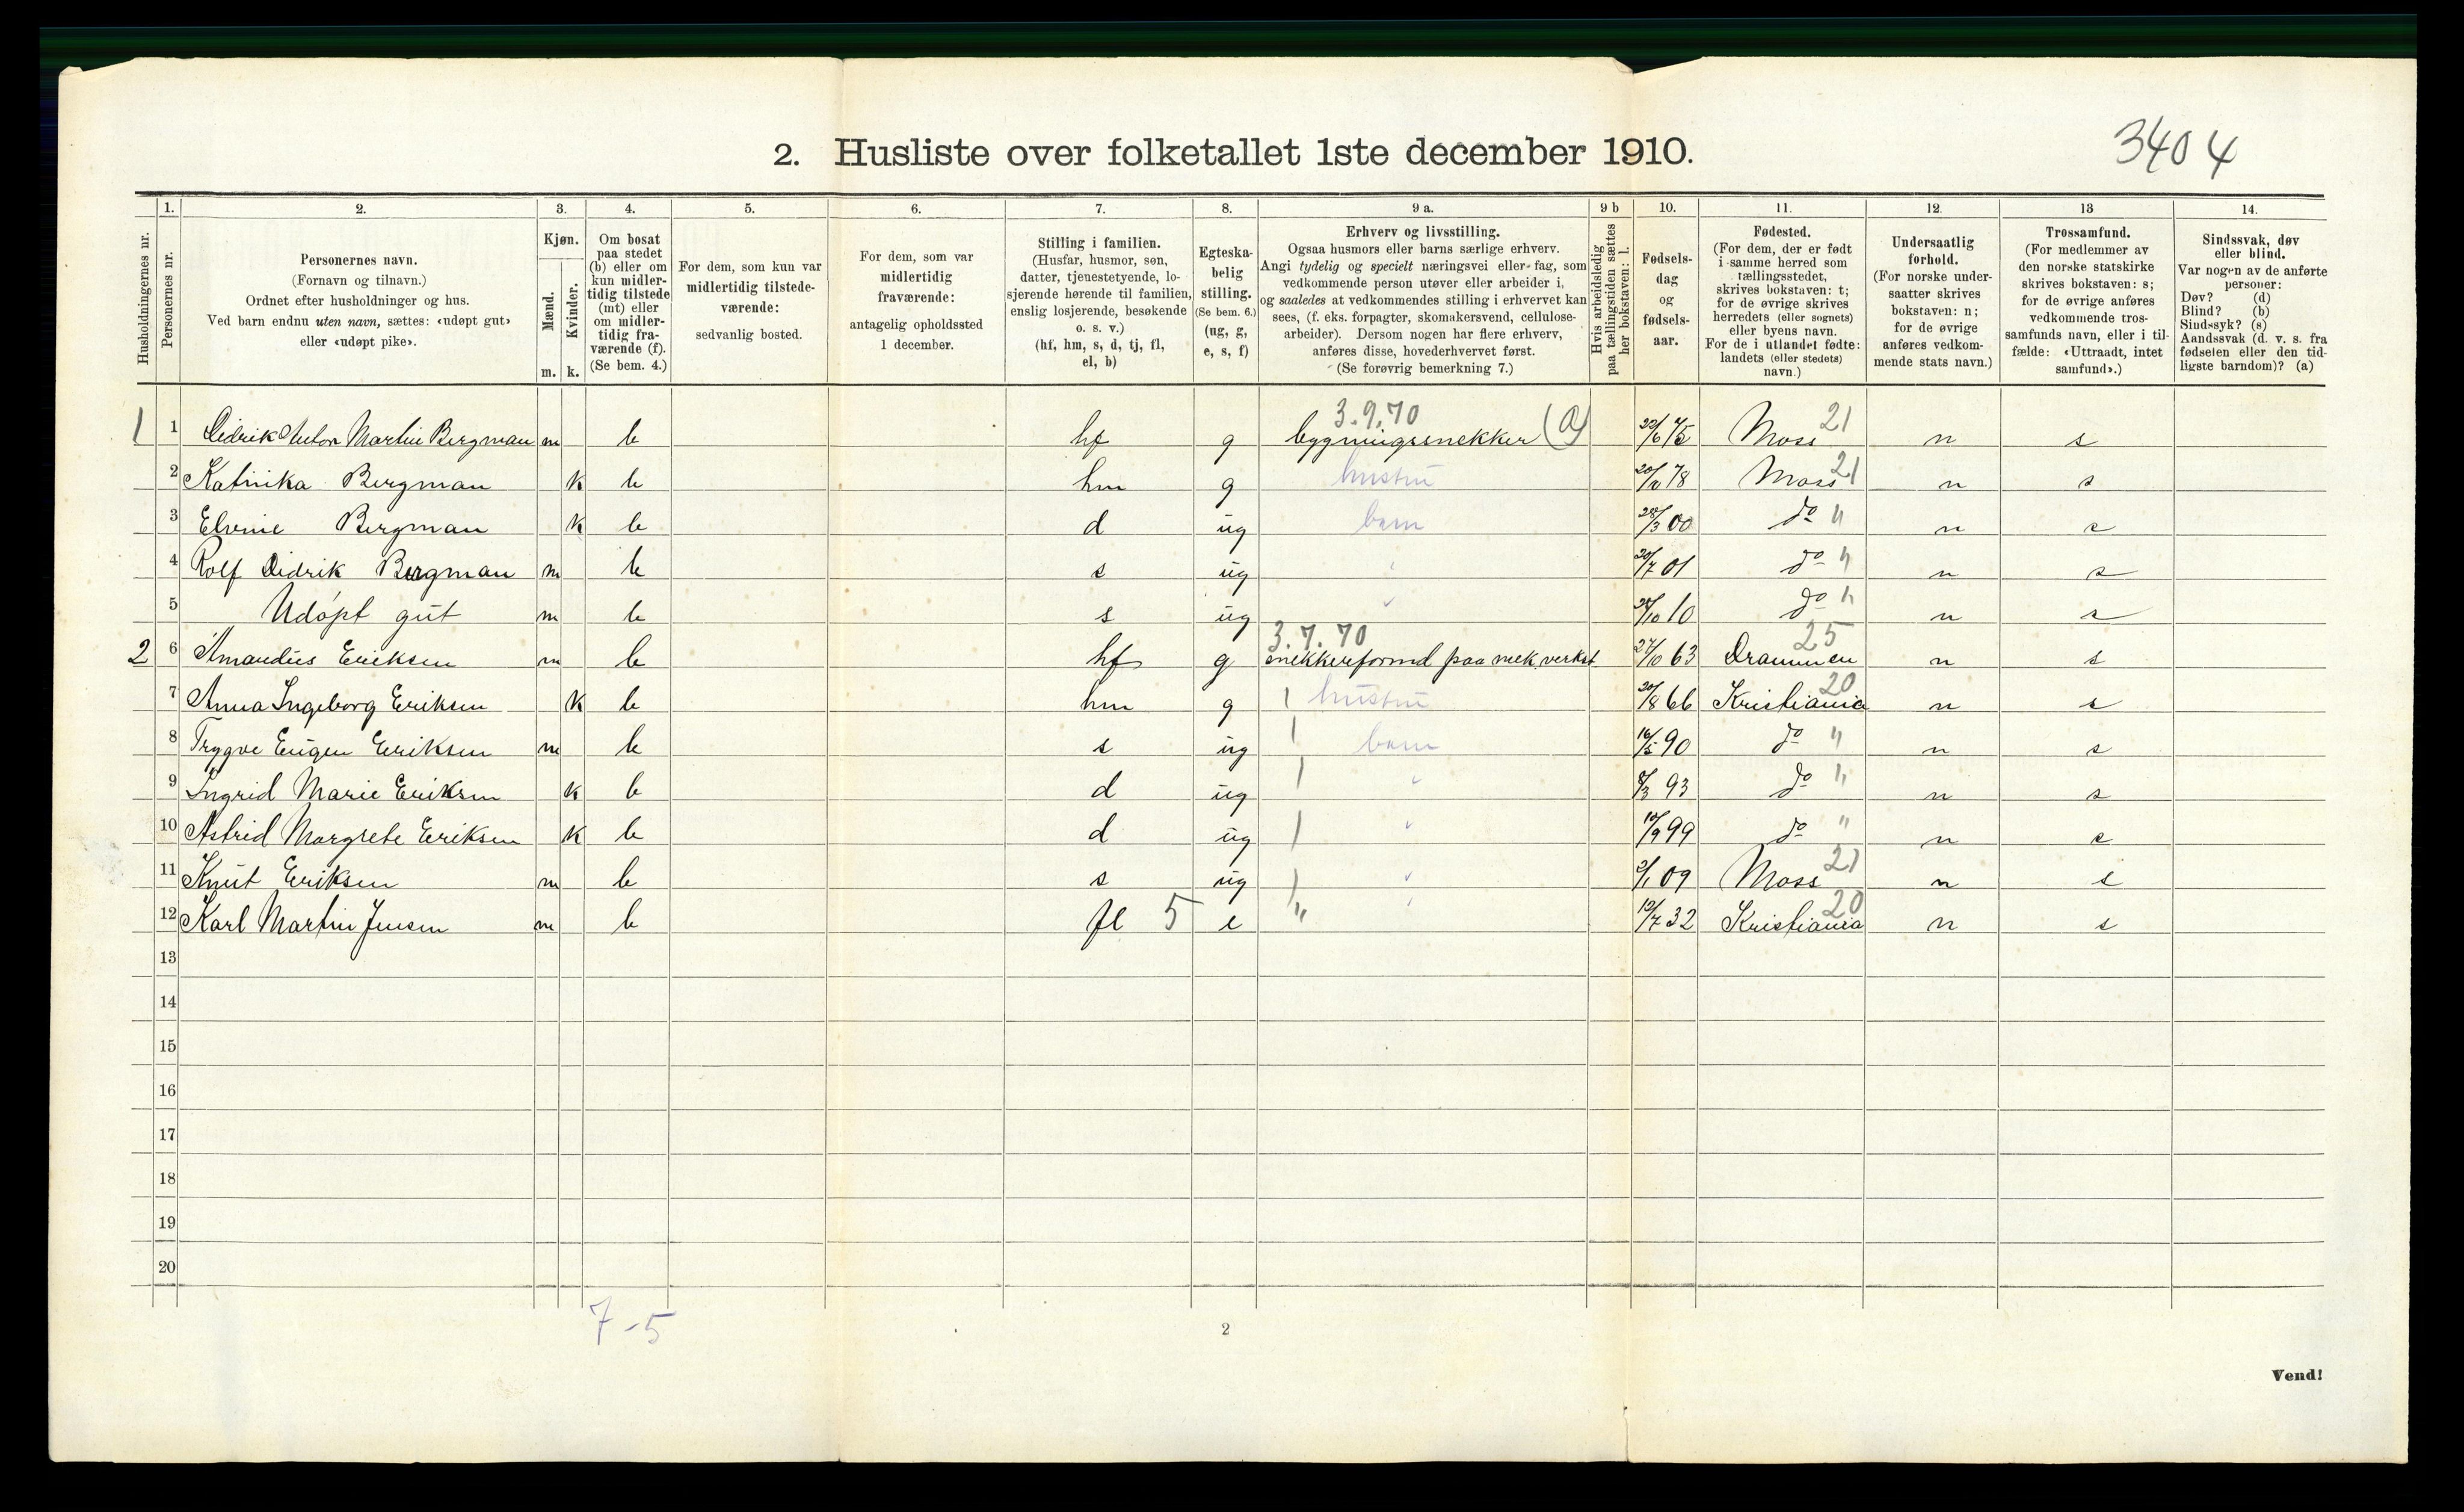 2. Husliste over folketallet 1ste december 1910.
3404
Husholdningernes nr.
1.
Personernes nr.
2.
Personernes navn.
(Fornavn og tilnavn.)
Ordnet efter husholdninger og hus.
Ved barn endnu uten navn, sættes: «udøpt gut»
eller «udøpt pike».
3.
Kjøn.
Mænd.
Kvinder.
m. k.
4.
Om bosat
paa stedet
(b) eller om
kun midler-
tidig tilstede
(mt) eller
om midler-
tidig fra-
værende (f).
(Se bem. 4.)
5.
For dem, som kun var
midlertidig tilstede-
værende:
sedvanlig bosted.
6.
For dem, som var
midlertidig
fraværende:
antagelig opholdssted
1 december.
7.
Stilling i familien.
(Husfar, husmor, søn,
datter, tjenestetyende, lo-
sjerende hørende til familien,
enslig losjerende, besøkende
o. s. v.)
(hf, hm, s, d, tj, fl,
el, b)
8.
Egteska-
belig
stilling.
(Se bem. 6.)
(ug, g,
e, s, f)
9 a.
Erhverv og livsstilling.
Ogsaa husmors eller barns særlige erhverv.
Angi tydelig og specielt næringsvei eller fag, som
vedkommende person utøver eller arbeider i,
og saaledes at vedkommendes stilling i erhvervet kan
sees, (f. eks. forpagter, skomakersvend, cellulose-
arbeider). Dersom nogen har flere erhverv,
anføres disse, hovederhvervet først.
(Se forøvrig bemerkning 7.)
9 b
Hvis arbeidsledig
paa tællingstiden sættes
her bokstaven: l.
10.
Fødsels-
dag
og
fødsels-
aar.
11.
Fødested.
(For dem, der er født
i samme herred som
tællingsstedet,
skrives bokstaven: t;
for de øvrige skrives
herredets (eller sognets)
eller byens navn.
For de i utlandet fødte:
landets (eller stedets)
navn.)
12.
Undersaatlig
forhold.
(For norske under-
saatter skrives
bokstaven: n;
for de øvrige
anføres vedkom-
mende stats navn.)
13
Trossamfund.
(For medlemmer av
den norske statskirke
skrives bokstaven: s;
for de øvrige anføres
vedkommende tros-
samfunds navn, eller i til-
fælde: «Uttraadt, intet
samfund».)
14.
Sindssvak, døv
eller blind.
Var nogen av de anførte
personer:
Døv? (d)
Blind? (b)
Sindssyk? (s)
Aandssvak (d. v. s. fra
fødselen eller den tid-
ligste barndom)? (a)
3.9.70
1 1 Didrik Anton Martin Bergman m b hf g bygningssnekker (a) 22/6 75 Moss 21 n s
2 Katinka Bergman k b hm g hustru 20/10 78 Moss 21 n s
3 Elvine Bergman k b d ug barn 28/3 00 do " n s
4 Rolf Didrik Bergman m b s ug 20/7 01 do " n s
5 Udøpt gut m b s ug 28/10 10 do " n s
3.7.70 25
2 6 Amandus Eriksen m b hf g snekkerformd paa mek. verkst 27/10 63 Drammen n s
7 Anna Ingeborg Eriksen k b hm g hustru 20/8 66 Kristiania 20 n s
8 Trygve Eugen Eriksen m b s ug barn 16/5 90 do " n s
9 Ingrid Marie Eriksen k b d ug 8/3 93 do " n s
10 Astrid Margrete Eriksen k b d ug 10/9 99 do " n s
11 Knut Eriksen m b s ug 2/1 09 Moss 21 n s
12 Karl Martin Jensen m b fl 5 e " 10/7 32 Kristiania 20 n s
13
14
15
16
17
18
19
20
7-5
2
Vend!